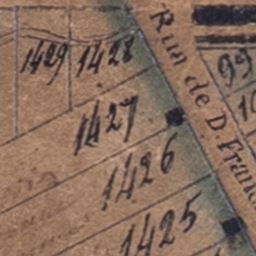 1429 1428
1427
1426
1425
Run de D. Fran
99
10